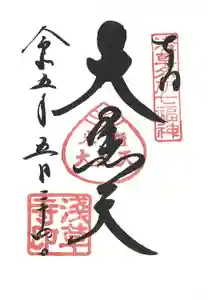 奉拝
浅草名所七福神
大黒天
令和五年五月二十四日
浅草寺印